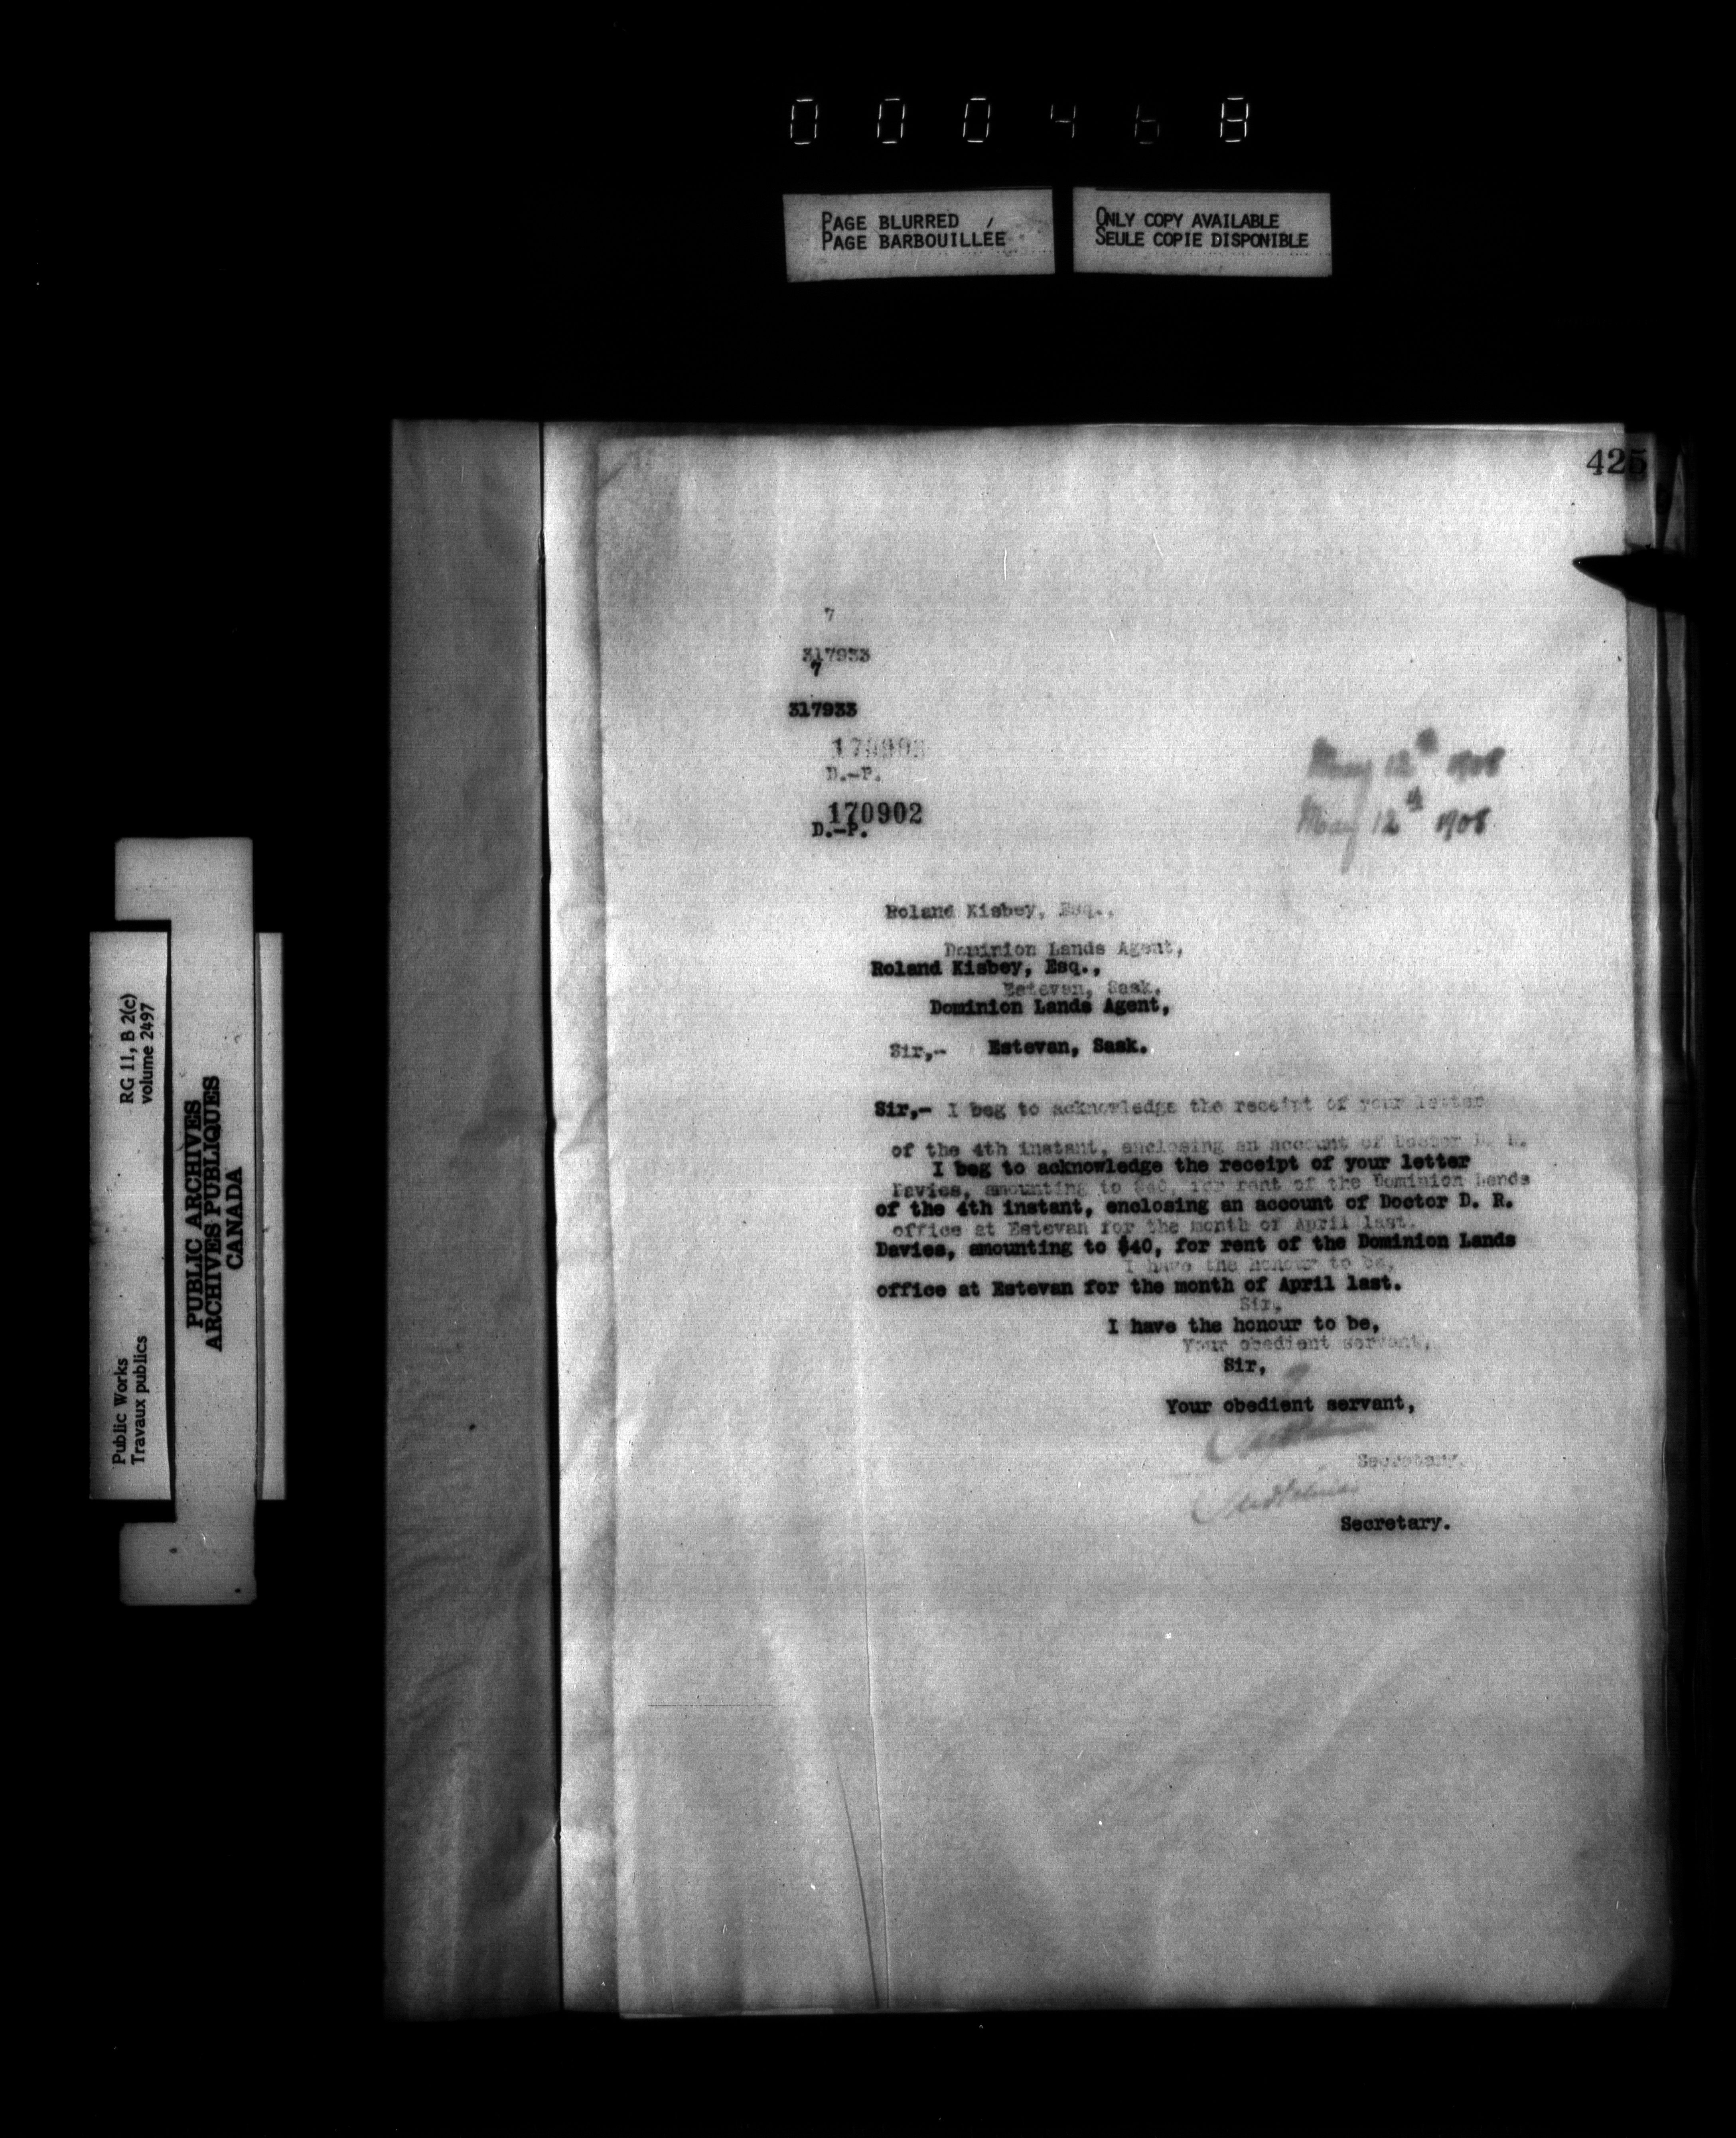 000468
PAGE BLURRED
PAGE BARBOUILLÉE
ONLY COPY AVAILABLE
SEULE COPIE DISPONIBLE
RG 11, B 2(c)
volume 2497
PUBLIC ARCHIVES
ARCHIVES PUBLIQUES
CANADA
Public Works
Travaux publics
425
7
317933
7
317933
170902
D.-P.
170902
D.-P.
May 12th 1908
May 12th 1908
Roland Kisbey, Esq.,
Dominion Lands Agent,
Roland Kisbey, Esq.,
Estevan, Sask.
Dominion Lands Agent,
Sir,- Estevan, Sask.
Sir,- I beg to acknowledge the receipt of your letter
of the 4th instant, enclosing an account of Doctor D. R.
I beg to acknowledge the receipt of your letter
Davies, amounting to $40, for rent of the Dominion Lands
of the 4th instant, enclosing an account of Doctor D. R.
office at Estevan for the month of April last.
Davies, amounting to $40, for rent of the Dominion Lands
I have the honour to be,
office at Estevan for the month of April last.
Sir,
I have the honour to be,
Your obedient servant,
Sir,
Your obedient servant,
Secretary.
Secretary.